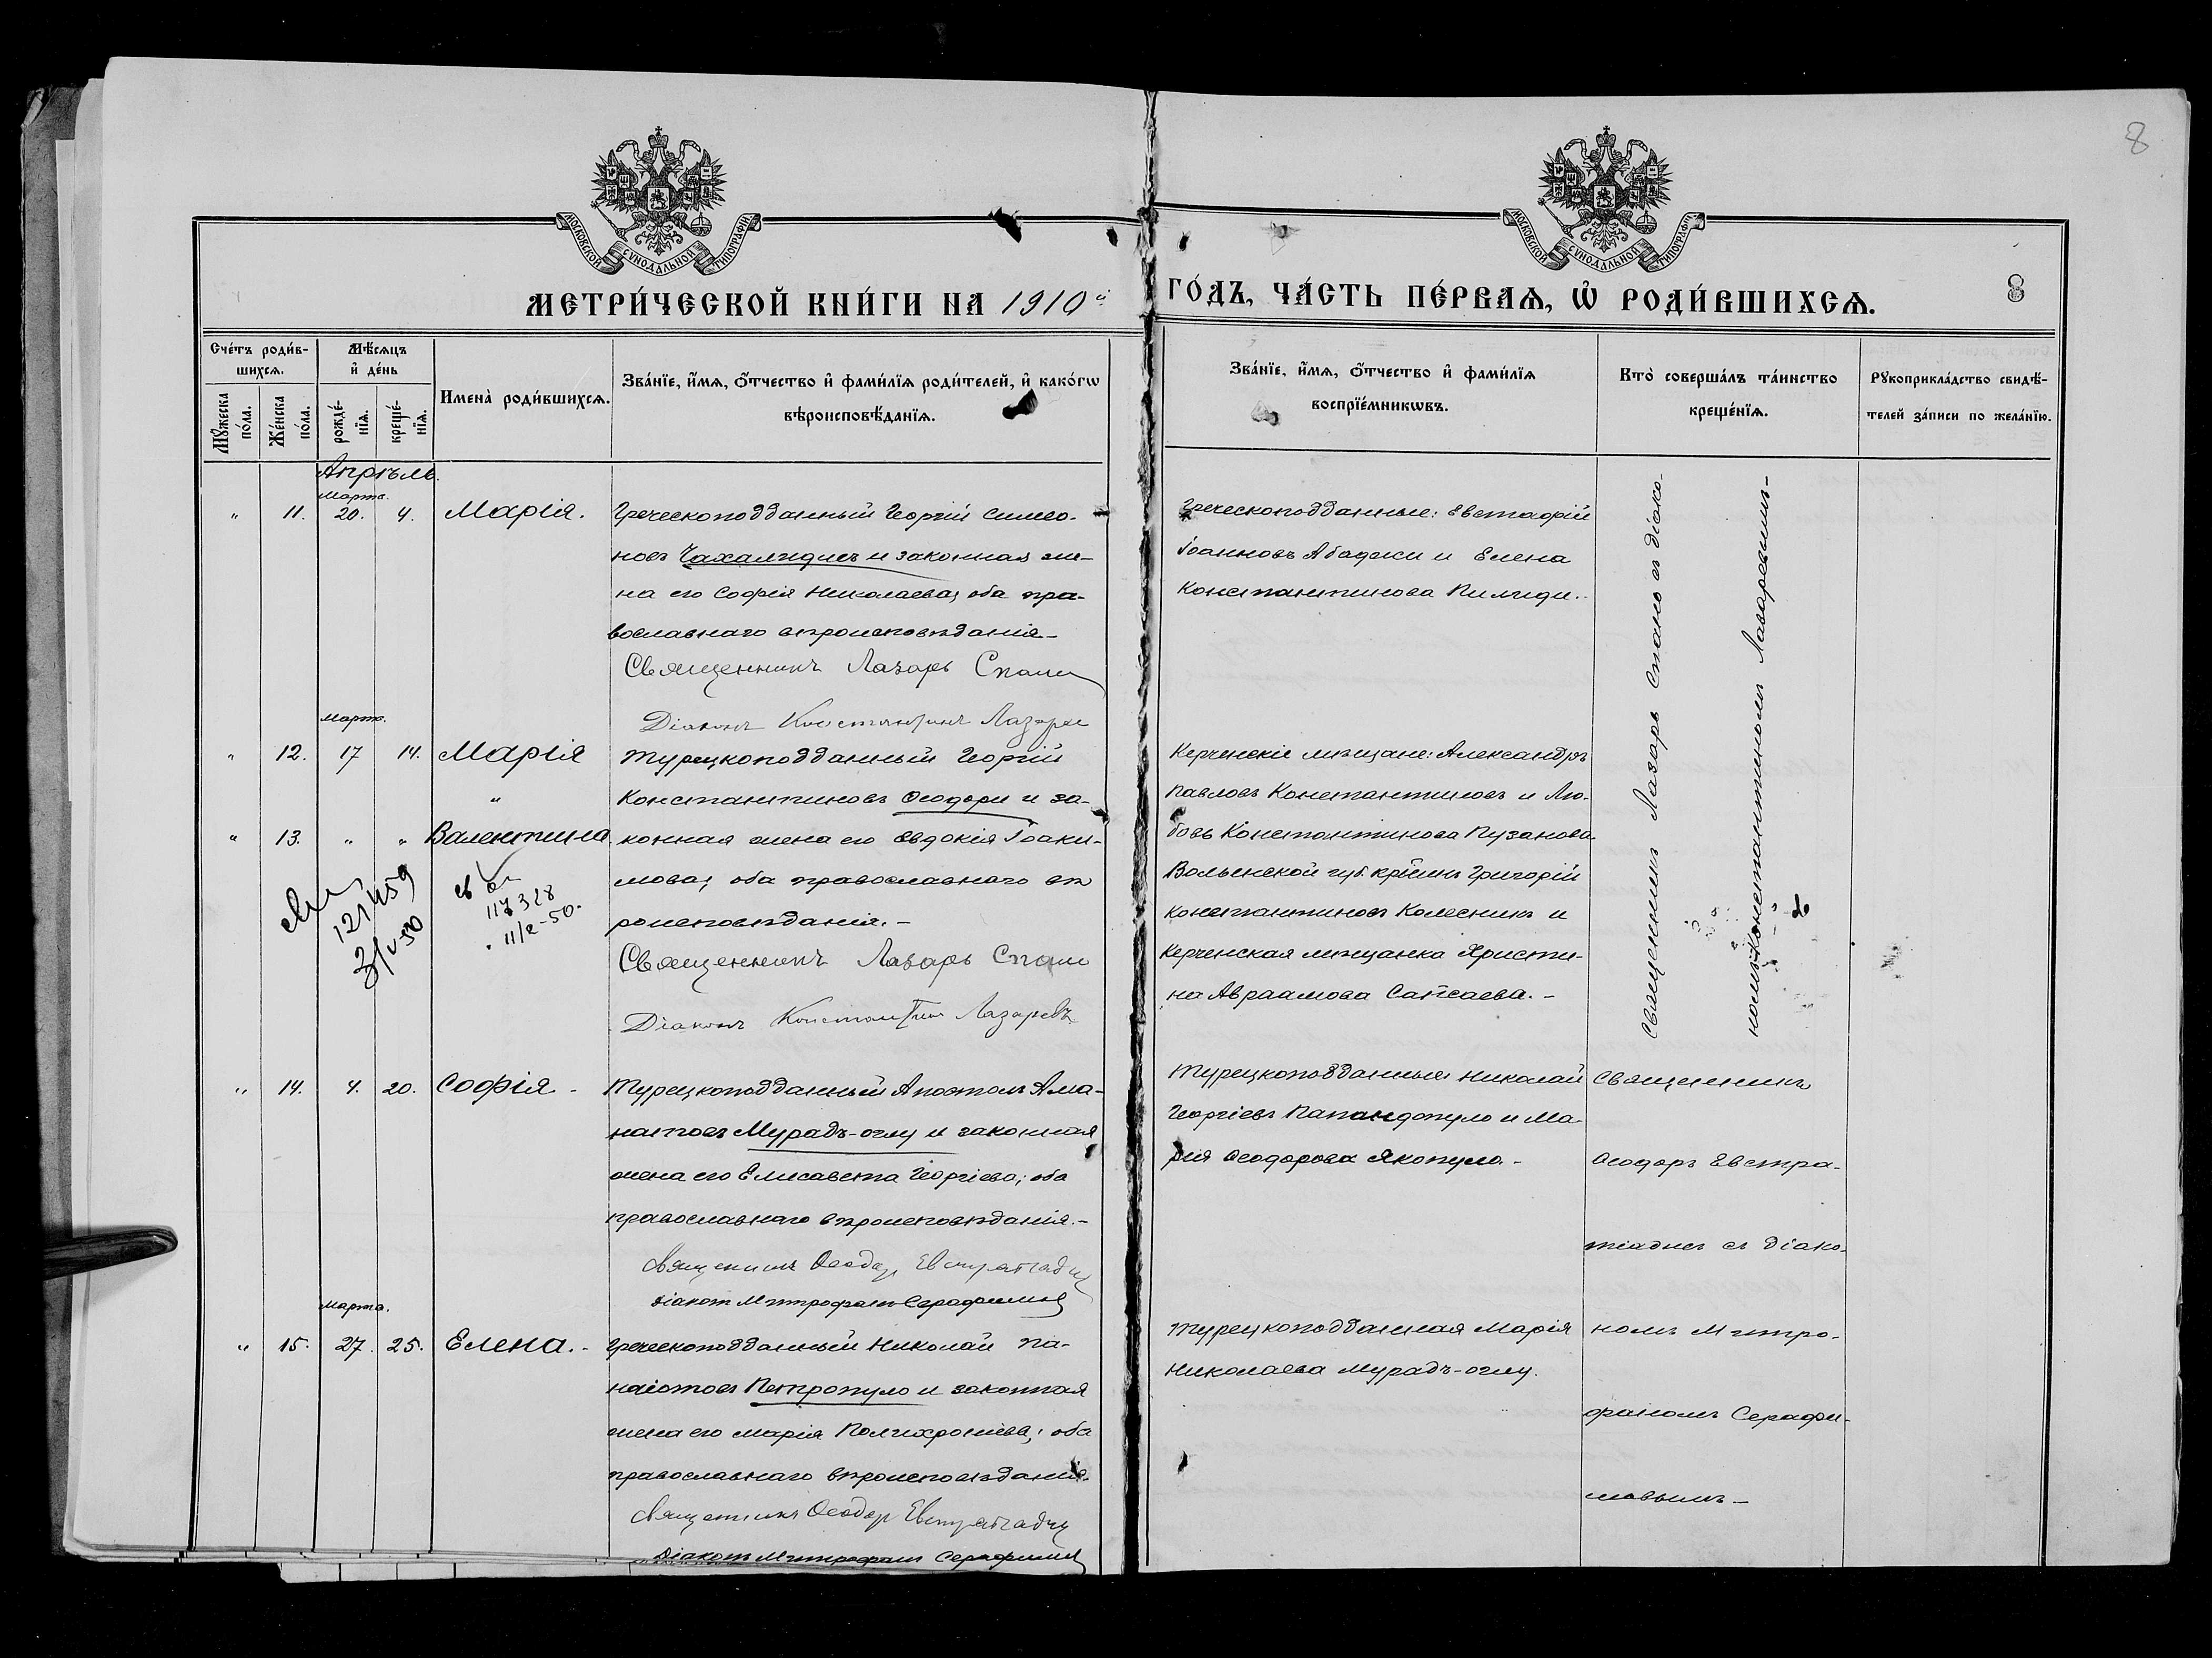 8
МОСКОВСКОЙ СѴНОДАЛЬНОЙ ТИПОГРАФІИ
МОСКОВСКОЙ СѴНОДАЛЬНОЙ ТИПОГРАФІИ
МЕТРИ́ЧЕСКОЙ КНИ́ГИ НА 1910й
ГО́ДЪ, ЧА́СТЬ ПЕ́РВАѦ, Ѡ РОДИ́ВШИХСѦ.
8
Счётъ роди́в-
шихсѧ.
Мѣ́сѧцъ
и де́нь
Мꙋжеска по́ла.
Же́нска по́ла.
рожде́-
нїѧ.
креще́-
нїѧ.
Имена̀ роди́вшихсѧ.
Зва́нїе, и́мѧ, ѻ́тчество и фами́лїѧ роди́телей, и како́гѡ
вѣроисповѣ́данїѧ.
Зва́нїе, и́мѧ, ѻ́тчество и фами́лїѧ
воспрїе́мникѡвъ.
Кто̀ соверша́лъ та́инство
креще́нїѧ.
Рꙋкоприкла́дство свидѣ́-
телей за́писи по жела́нїю.
Апрѣль.
Марта.
" 11. 20. 4. Марія.
Греческоподданный Георгій Симео-
новъ Чахалидисъ и законная же-
на его Софія Николаева; оба пра-
вославнаго вѣроисповѣданія_
Священникъ Лазарь Спано
Діаконъ Константинъ Лазарев
Греческоподданные: Евстафій
Іоанновъ Абаджи и Елена
Константинова Пилиди.
Марта.
" 12. 17 14. Марія
"
" 13. " " Валентина.
Турецкоподданный Георгій
Константиновъ Ѳеодори и за-
конная жена его Евдокія Іоаки-
мова; оба православнаго вѣ
роисповѣданія.-
Священникъ Лазарь Спано
Діаконъ Константин Лазаревъ
121459
3/V-50
117328
11/2-50.
Керченскіе мѣщане: Александръ
Павловъ Константиновъ и Лю-
бовь Константинова Пузанова
Волынской губ. кр̃нинъ Григорій
Константиновъ Колесникъ и
Керченская мѣщанка Христи-
на Авраамова Сапсаева.-
Священникъ Лазарь Спано съ діако-
номъ Константиномъ Лазаревымъ-
" 14. 4. 20. Софія-
Турецкоподданный Апостолъ Ама-
натовъ Мурадъ-оглу и законная
жена его Елисавета Георгіева; оба
православнаго вѣроисповѣданія.-
Священникъ Ѳеодор Евстратіадис
Діаконъ Митрофанъ Серафимов
Турецкоподданные Николай
Георгіевъ Папандопуло и Ма-
рія Ѳеодорова Якопуло.-
Священникъ
Ѳеодоръ Евстра-
тіадисъ съ діако-
номъ Митро-
фаномъ Серафи-
мовымъ_
Марта.
" 15. 27. 25. Елена.-
Греческоподданный Николай Па-
наіотовъ Петропуло и законная
жена его Марія Полихроніева; оба
православнаго вѣроисповѣданія.
Священникъ Ѳеодор Евстратіадис
Діаконъ Митрофанъ Серафимов
Турецкоподданная Марія
Николаева Мурадъ-оглу.